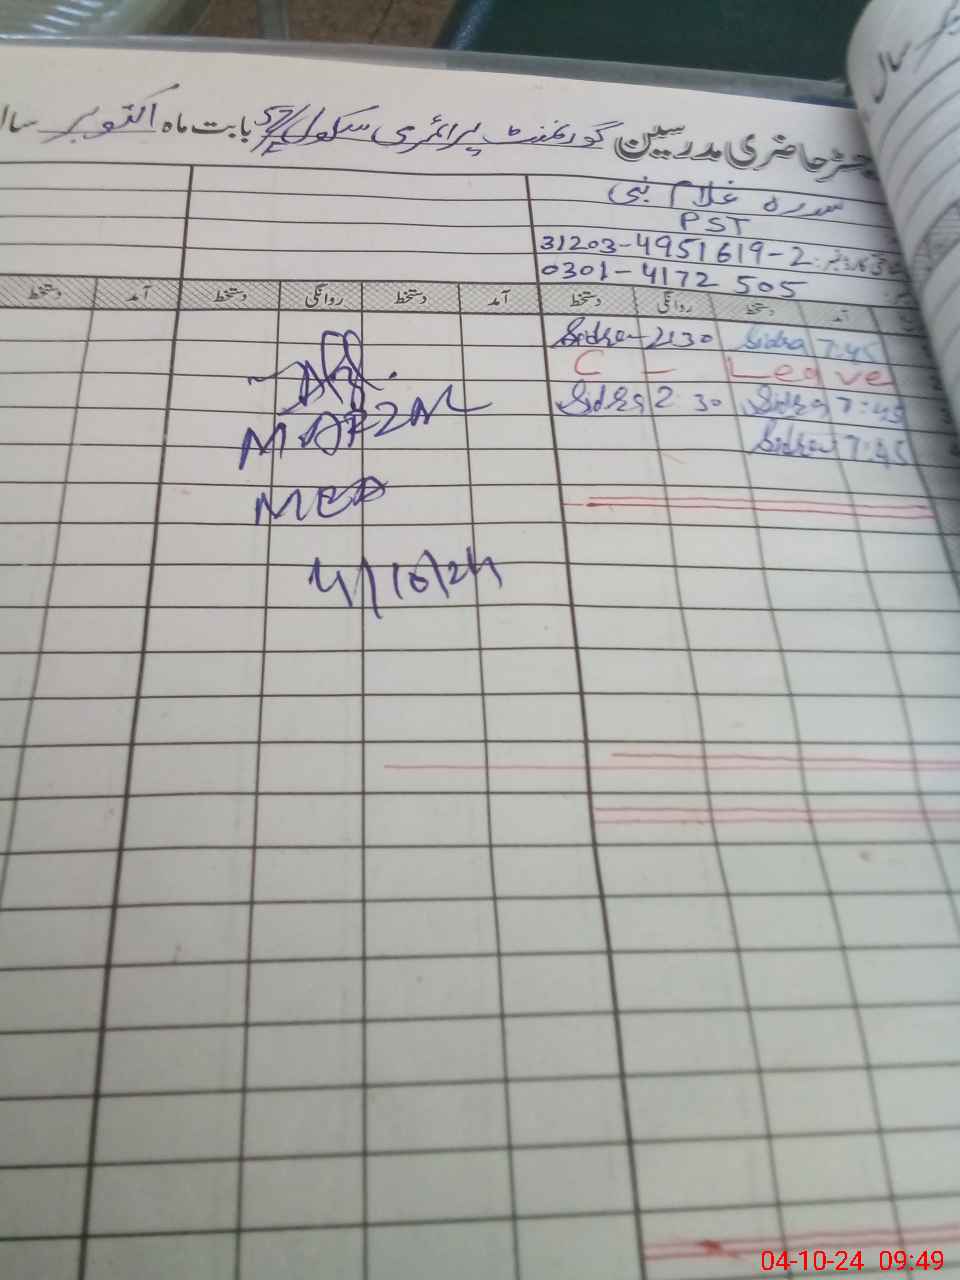 سال
رجسٹر حاضری مدرسین گورنمنٹ پرائمری سکول 57/ بابت ماہ اکتوبر سا
سدرہ غلام نبی
PST
31203-4951619-2
0301-4172505
آمد دستخط روانگی دستخط آمد دستخط روانگی دستخط آمد دستخط
7:45 Sidra 2:30 Sidra
C - Leave
7:45 Sidra 2:30 Sidra
7:45 Sidra
4/10/24
04-10-24 09:49